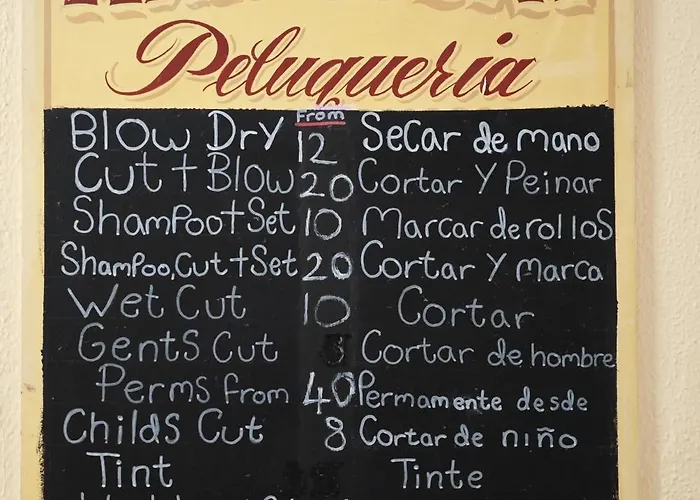 Peluqueria
From
Blow Dry 12 Secar de mano
Cut + Blow 20 Cortar y Peinar
Shampoo + Set 10 Marcar de rollos
Shampoo, Cut + Set 20 Cortar y marca
Wet Cut 10 Cortar
Gents Cut Cortar de hombre
Perms from 40 Permamente desde
Childs Cut 8 Cortar de niño
Tint Tinte